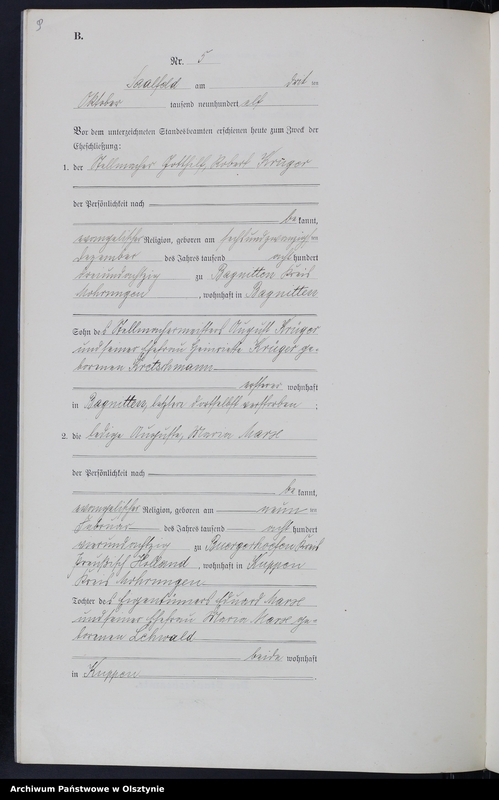 B.
Nr. 5
Saalfeld am drit ten
Oktober tausend neunhundert elf
Vor dem unterzeichneten Standesbeamten erschienen heute zum Zweck der
Eheschließung:
1. der Stellmacher Gotthilf, Robert Krüger
der Persönlichkeit nach
be kannt,
evangelischer Religion, geboren am sechsundzwanzigsten
Dezember des Jahres tausend acht hundert
dreiundachtzig zu Bagnitten Kreis
Mohrungen, wohnhaft in Bagnitten
Sohn des Stellmachermeisters August Krüger
und seiner Ehefrau Heinriette Krüger ge-
borenen Kretschmann
ersterer wohnhaft
in Bagnitten, letztere daselbst verstorben ;
2. die ledige Auguste, Maria Marx
der Persönlichkeit nach
be kannt,
evangelischer Religion, geboren am neun ten
Februar des Jahres tausend acht hundert
vierundachtzig zu Kreis
Preußisch Holland, wohnhaft in Kuppen
Kreis Mohrungen
Tochter des Eigentümers Eduard Marx
und seiner Ehefrau Maria Marx ge-
borenen
beide wohnhaft
in Kuppen
Archiwum Państwowe w Olsztynie